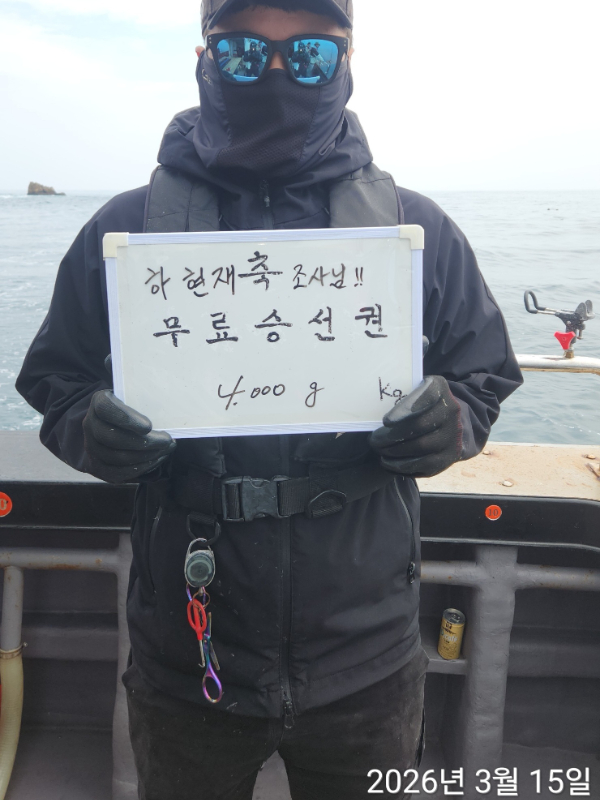 하 현재 축 조사님!!
무료승선권
4.000 g kg
10
2026년 3월 15일